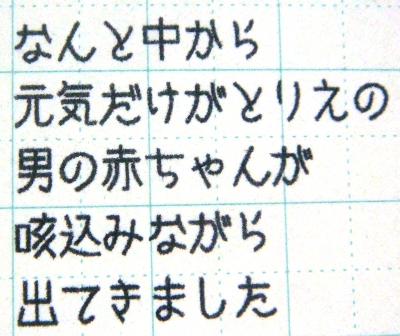 なんと中から
元気だけがとりえの
男の赤ちゃんが
咳込みながら
出てきました